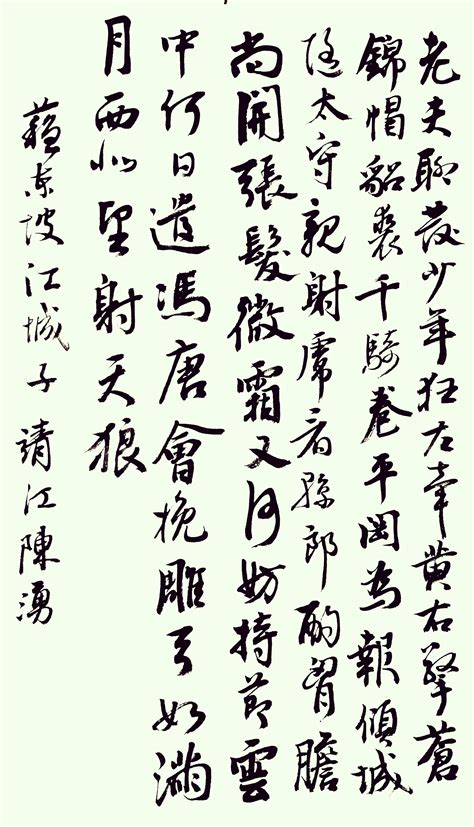 老夫聊發少年狂左牽黃右擎蒼
錦帽貂裘千騎卷平岡為報傾城
隨太守親射虎看孫郎酣胷膽
尚開張鬢微霜又何妨持節雲
中何日遣馮唐會挽雕弓如滿
月西北望射天狼
蘇東坡江城子 請江陳湧